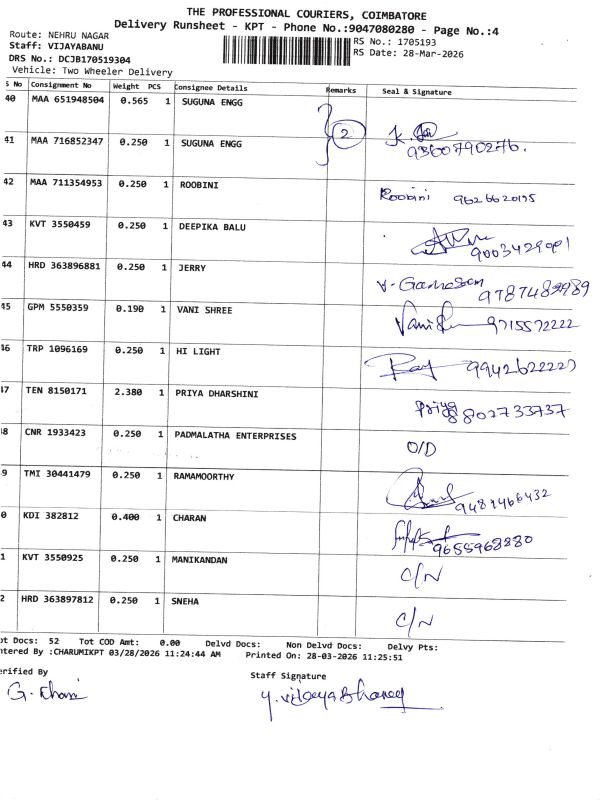 THE PROFESSIONAL COURIERS, COIMBATORE
Delivery Runsheet - KPT - Phone No.:9047080280 - Page No.:4
Route: NEHRU NAGAR
RS No.: 1705193
Staff: VIJAYABANU
RS Date: 28-Mar-2026
DRS No.: DCJB170519304
Vehicle: Two Wheeler Delivery
S No Consignment No Weight PCS Consignee Details Remarks Seal & Signature
40 MAA 651948504 0.565 1 SUGUNA ENGG
2
41 MAA 716852347 0.250 1 SUGUNA ENGG 9360790276.
42 MAA 711354953 0.250 1 ROOBINI Roobini 9626620195
43 KVT 3550459 0.250 1 DEEPIKA BALU 9003429091
44 HRD 363896881 0.250 1 JERRY 9787482989
45 GPM 5550359 0.190 1 VANI SHREE Vani 9715572222
46 TRP 1096169 0.250 1 HI LIGHT 9942622227
47 TEN 8150171 2.380 1 PRIYA DHARSHINI Priya 8802733737
48 CNR 1933423 0.250 1 PADMALATHA ENTERPRISES O/D
9 TMI 30441479 0.250 1 RAMAMOORTHY 9487466432
0 KDI 382812 0.400 1 CHARAN 9655968880
1 KVT 3550925 0.250 1 MANIKANDAN C/N
2 HRD 363897812 0.250 1 SNEHA C/N
ot Docs: 52 Tot COD Amt: 0.00 Delvd Docs: Non Delvd Docs: Delvy Pts:
ntered By :CHARUMIKPT 03/28/2026 11:24:44 AM Printed On: 28-03-2026 11:25:51
erified By Staff Signature